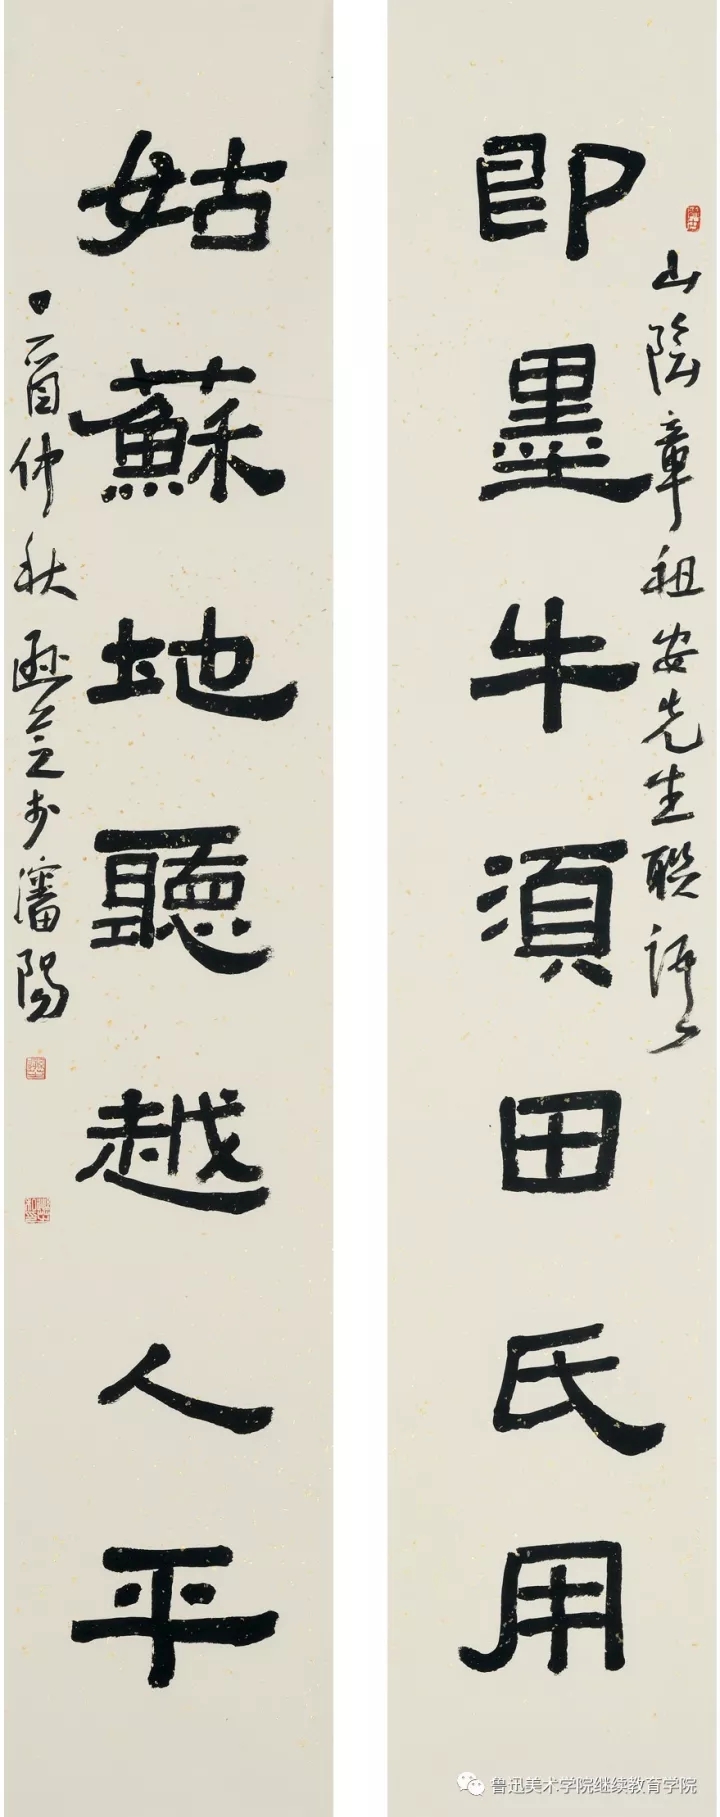 山陰章祖安先生聯語
即墨牛須田氏用
姑蘇地聽越人平
丁酉仲秋於瀋陽
鲁迅美术学院继续教育学院